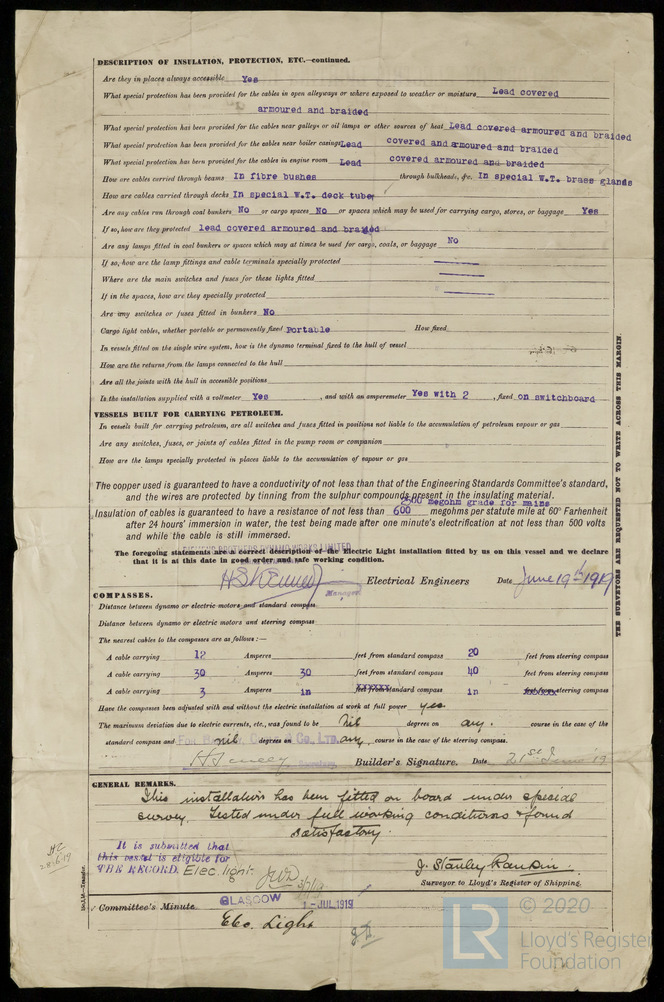 DESCRIPTION OF INSULATION, PROTECTION, ETC.—continued.
Are they in places always accessible Yes
What special protection has been provided for the cables in open alleyways or where exposed to weather or moisture Lead covered
armoured and braided
What special protection has been provided for the cables near galleys or oil lamps or other sources of heat Lead covered armoured and braided
What special protection has been provided for the cables near boiler casings Lead covered and armoured and braided
What special protection has been provided for the cables in engine room Lead covered armoured and braided
How are cables carried through beams In fibre bushes through bulkheads, &c. In special W.T. brass glands
How are cables carried through decks In special W.T. deck tubes
Are any cables run through coal bunkers No or cargo spaces No or spaces which may be used for carrying cargo, stores, or baggage Yes
If so, how are they protected lead covered armoured and braided
Are any lamps fitted in coal bunkers or spaces which may at times be used for cargo, coals, or baggage No
If so, how are the lamp fittings and cable terminals specially protected
Where are the main switches and fuses for these lights fitted
If in the spaces, how are they specially protected
Are any switches or fuses fitted in bunkers No
Cargo light cables, whether portable or permanently fixed Portable How fixed
In vessels fitted on the single wire system, how is the dynamo terminal fixed to the hull of vessel
How are the returns from the lamps connected to the hull
Are all the joints with the hull in accessible positions
Is the installation supplied with a voltmeter Yes , and with an amperemeter Yes with 2 , fixed on switchboard
VESSELS BUILT FOR CARRYING PETROLEUM.
In vessels built for carrying petroleum, are all switches and fuses fitted in positions not liable to the accumulation of petroleum vapour or gas
Are any switches, fuses, or joints of cables fitted in the pump room or companion
How are the lamps specially protected in places liable to the accumulation of vapour or gas
The copper used is guaranteed to have a conductivity of not less than that of the Engineering Standards Committee's standard,
and the wires are protected by tinning from the sulphur compounds present in the insulating material.
2500 megohm grade for mains
Insulation of cables is guaranteed to have a resistance of not less than 600 megohms per statute mile at 60° Farhenheit
after 24 hours' immersion in water, the test being made after one minute's electrification at not less than 500 volts
and while the cable is still immersed.
The foregoing statements are a correct description of the Electric Light installation fitted by us on this vessel and we declare
that it is at this date in good order and safe working condition.
Electrical Engineers Date June 19th 1919
Manager
COMPASSES.
Distance between dynamo or electric motors and standard compass
Distance between dynamo or electric motors and steering compass
The nearest cables to the compasses are as follows:—
A cable carrying 12 Amperes feet from standard compass 20 feet from steering compass
A cable carrying 30 Amperes 30 feet from standard compass 40 feet from steering compass
A cable carrying 3 Amperes in feet from standard compass in feet from steering compass
Have the compasses been adjusted with and without the electric installation at work at full power Yes
The maximum deviation due to electric currents, etc., was found to be Nil degrees on any course in the case of the
standard compass and nil degrees on any course in the case of the steering compass.
Secretary. Builder's Signature. Date 21st June '19
GENERAL REMARKS.
This installation has been fitted on board under special
survey. Tested under full working conditions & found
satisfactory.
It is submitted that
this vessel is eligible for
THE RECORD. Elec. light
J. Stanley Rankin
Surveyor to Lloyd's Register of Shipping.
Committee's Minute GLASGOW 1-JUL 1919
Elec. Light
THE SURVEYORS ARE REQUESTED NOT TO WRITE ACROSS THIS MARGIN.
LR © 2020
Lloyd's Register
Foundation